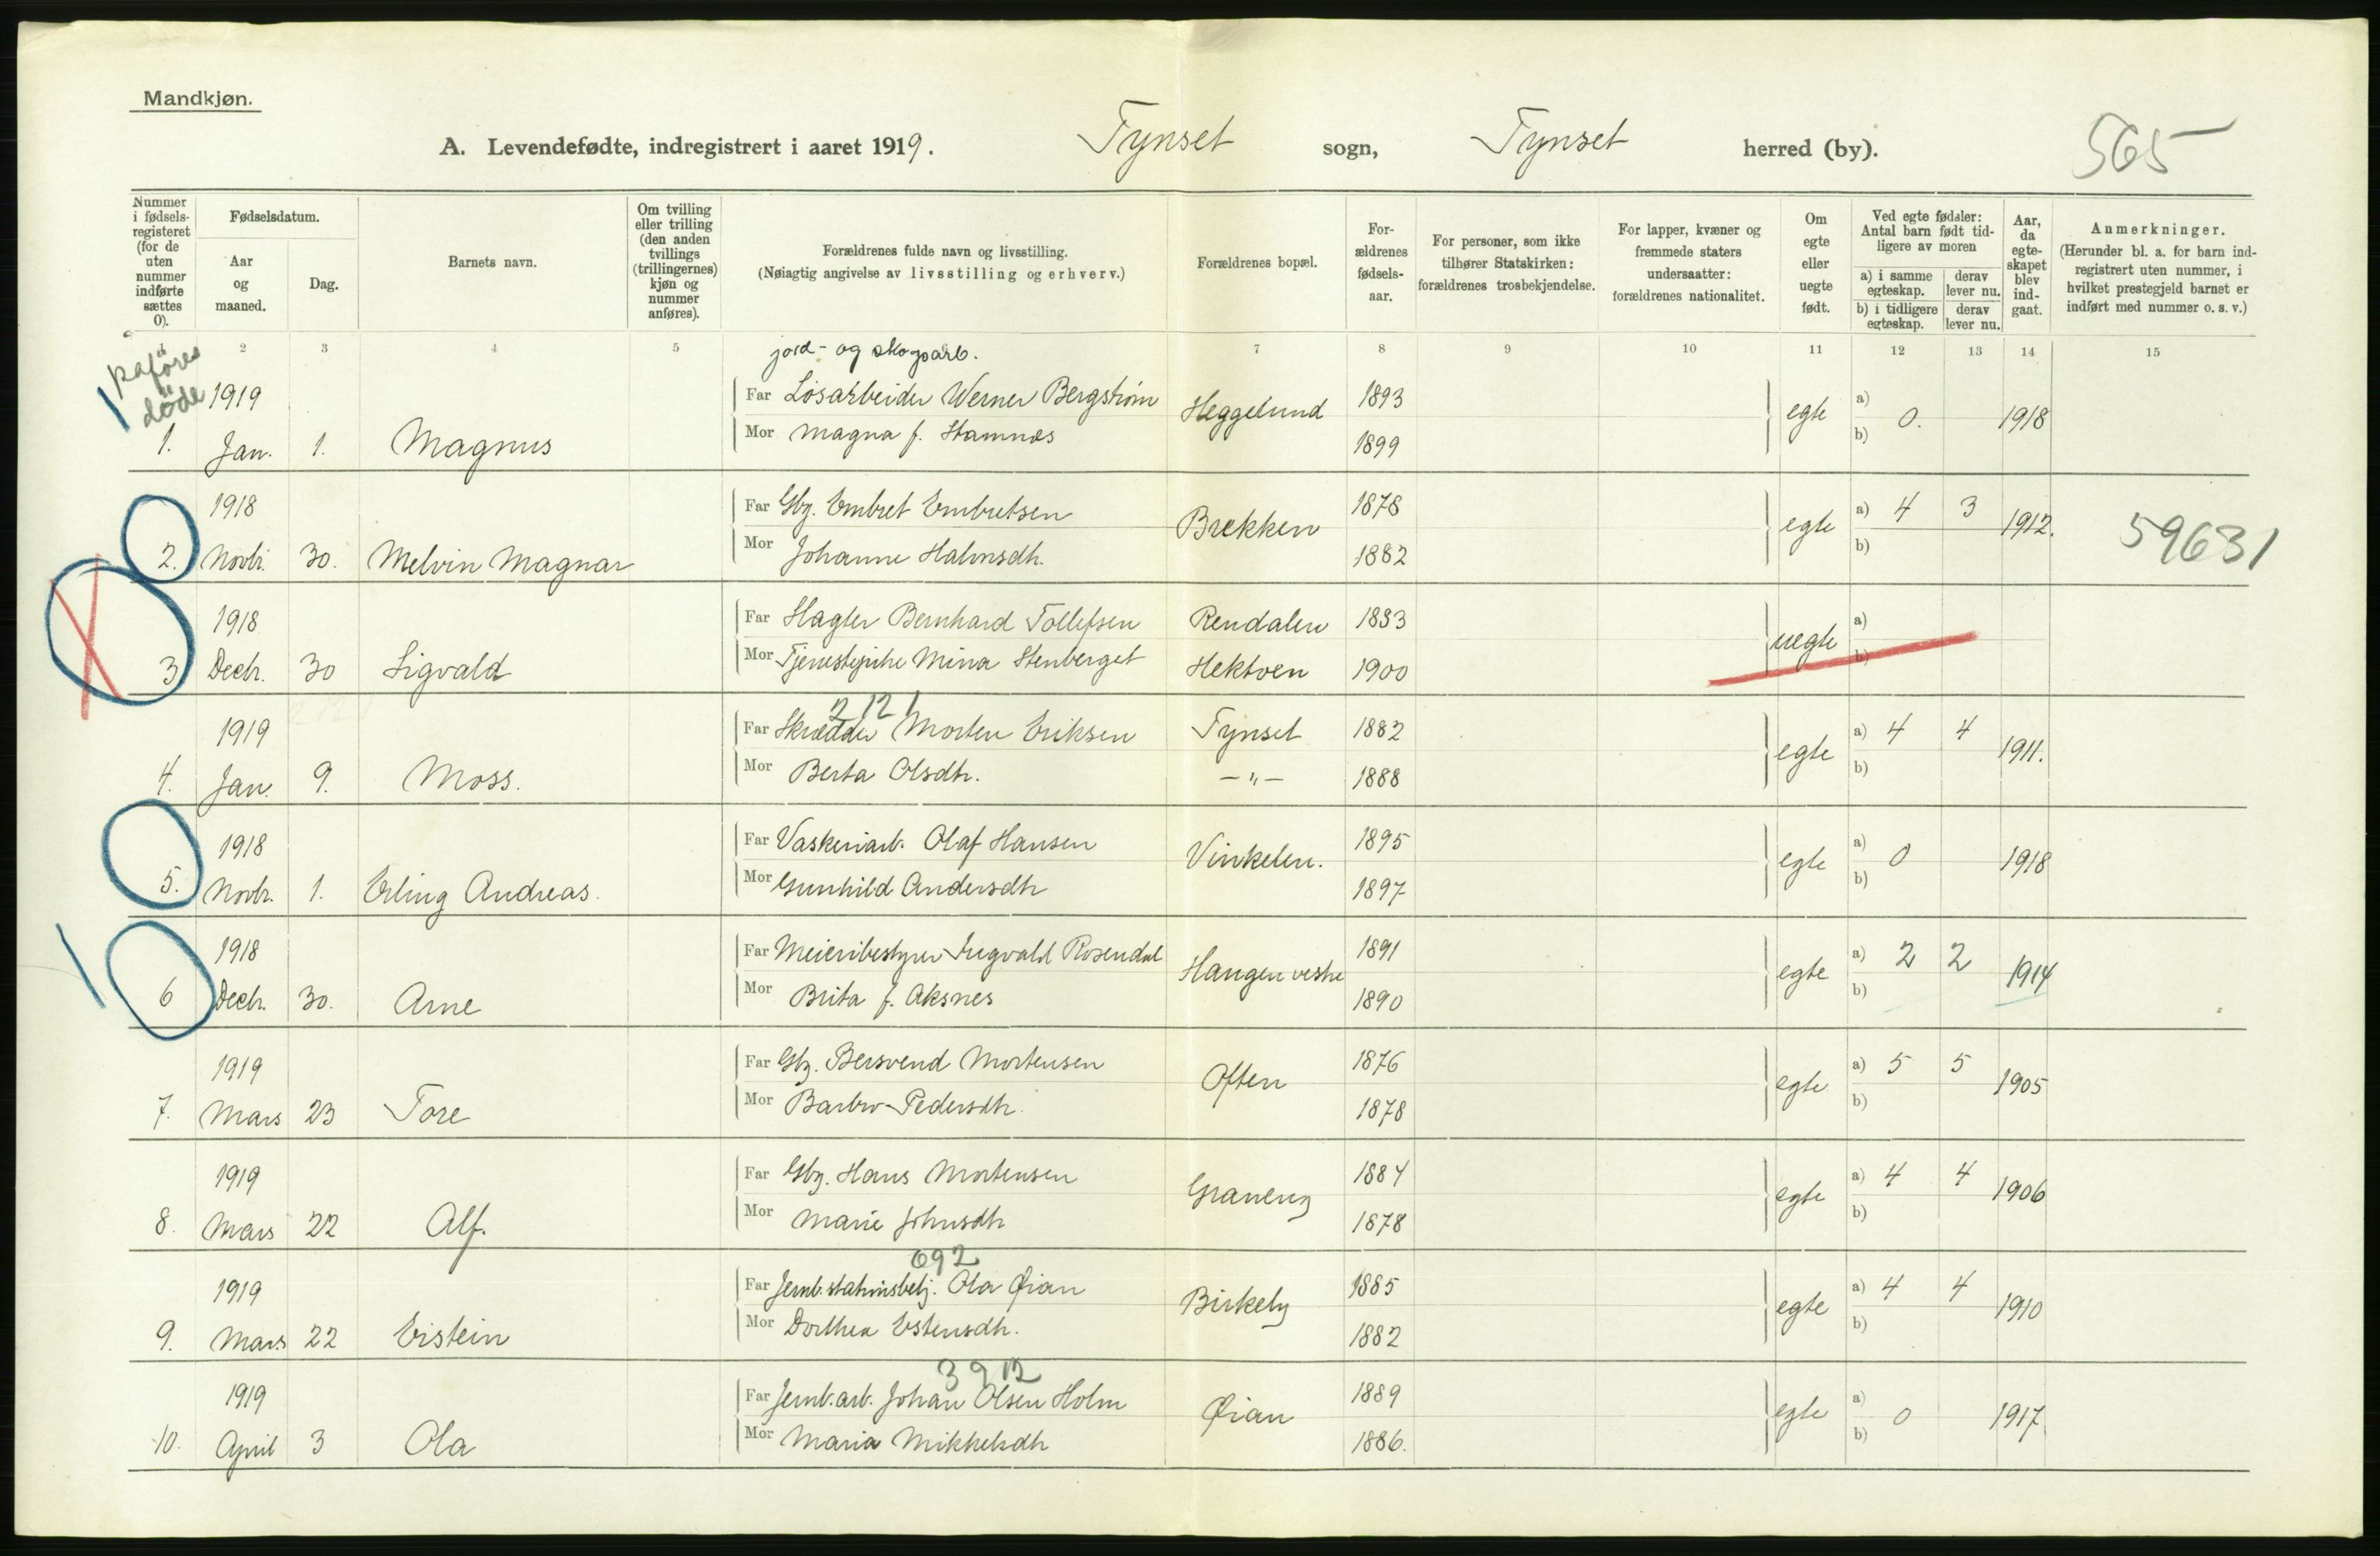 Mandkjøn.
A. Levendefødte, indregistrert i aaret 1919. Tynset sogn, Tynset herred (by). 565
Nummer i fødselsregisteret (for de uten nummer indførte sættes 0).
Fødselsdatum.
Aar og maaned.
Dag.
Barnets navn.
Om tvilling eller trilling (den anden tvillings (trillingernes) kjøn og nummer anføres).
Forældrenes fulde navn og livsstilling.
(Nøiagtig angivelse av livsstilling og erhverv.)
Forældrenes bopæl.
Forældrenes fødselsaar.
For personer, som ikke tilhører Statskirken: forældrenes trosbekjendelse.
For lapper, kvæner og fremmede staters undersaatter: forældrenes nationalitet.
Om egte eller uegte født.
Ved egte fødsler: Antal barn født tidligere av moren
a) i samme egteskap. derav lever nu.
b) i tidligere egteskap. derav lever nu.
Aar, da egteskapet blev indgaat.
Anmerkninger.
(Herunder bl. a. for barn indregistrert uten nummer, i hvilket prestegjeld barnet er indført med nummer o. s. v.)
2 3 4 5 7 8 9 10 11 12 13 14 15
paføres døde
jord- og skogsarb.
1919 Far Løsarbeider Werner Bergstrøm Heggelund 1893 egte a) 0. 1918
1. Jan. 1. Magnus Mor Magna f. Stamnes 1899 b)
1918 Far Gbr. Embret Embretsen Brekken 1878 egte a) 4 3 1912. 59631
2. Novbr. 30. Melvin Magnar Mor Johanne Halvorsdtr. 1882 b)
1918 Far Hagler Bernhard Tollefsen Rendalen 1883 uegte a)
3 Decbr. 30 Sigvald Mor Tjenestepike Mina Stenberget Hektoen 1900 b)
2 12 1
1919 Far Skrædder Morten Eriksen Tynset 1882 egte a) 4 4 1911.
4. Jan. 9. Moss. Mor Berta Olsdtr. -"- 1888 b)
1918 Far Vaskeriarb. Olaf Hansen Vinkelen. 1895 egte a) 0 1918
5. Novbr. 1. Erling Andreas. Mor Gunhild Andersdtr 1897 b)
1918 Far Meieribestyrer Ingvald Rosendal Haugen vestre 1891 egte a) 2 2 1914
6 Decbr. 30. Arne Mor Brita f. Aksnes 1890 b)
1919 Far Gbr. Bersvend Mortensen Often 1876 egte a) 5 5 1905
7. Mars 23 Tore Mor Barbro Pedersdtr. 1878 b)
1919 Far Gbr. Hans Mortensen Graneng 1884 egte a) 4 4 1906
8. Mars 22 Alf. Mor Marie Johnsdtr 1878 b)
092
1919 Far Jernb.stationsbetj. Ola Øian Birkely 1885 egte a) 4 4 1910
9. Mars 22 Eistein Mor Dorthea Estensdtr. 1882 b)
3 9 12
1919 Far Jernb.arb. Johan Olsen Holm Øian 1889 egte a) 0 1917
10. April 3 Ola Mor Maria Mikkelsdtr 1886. b)